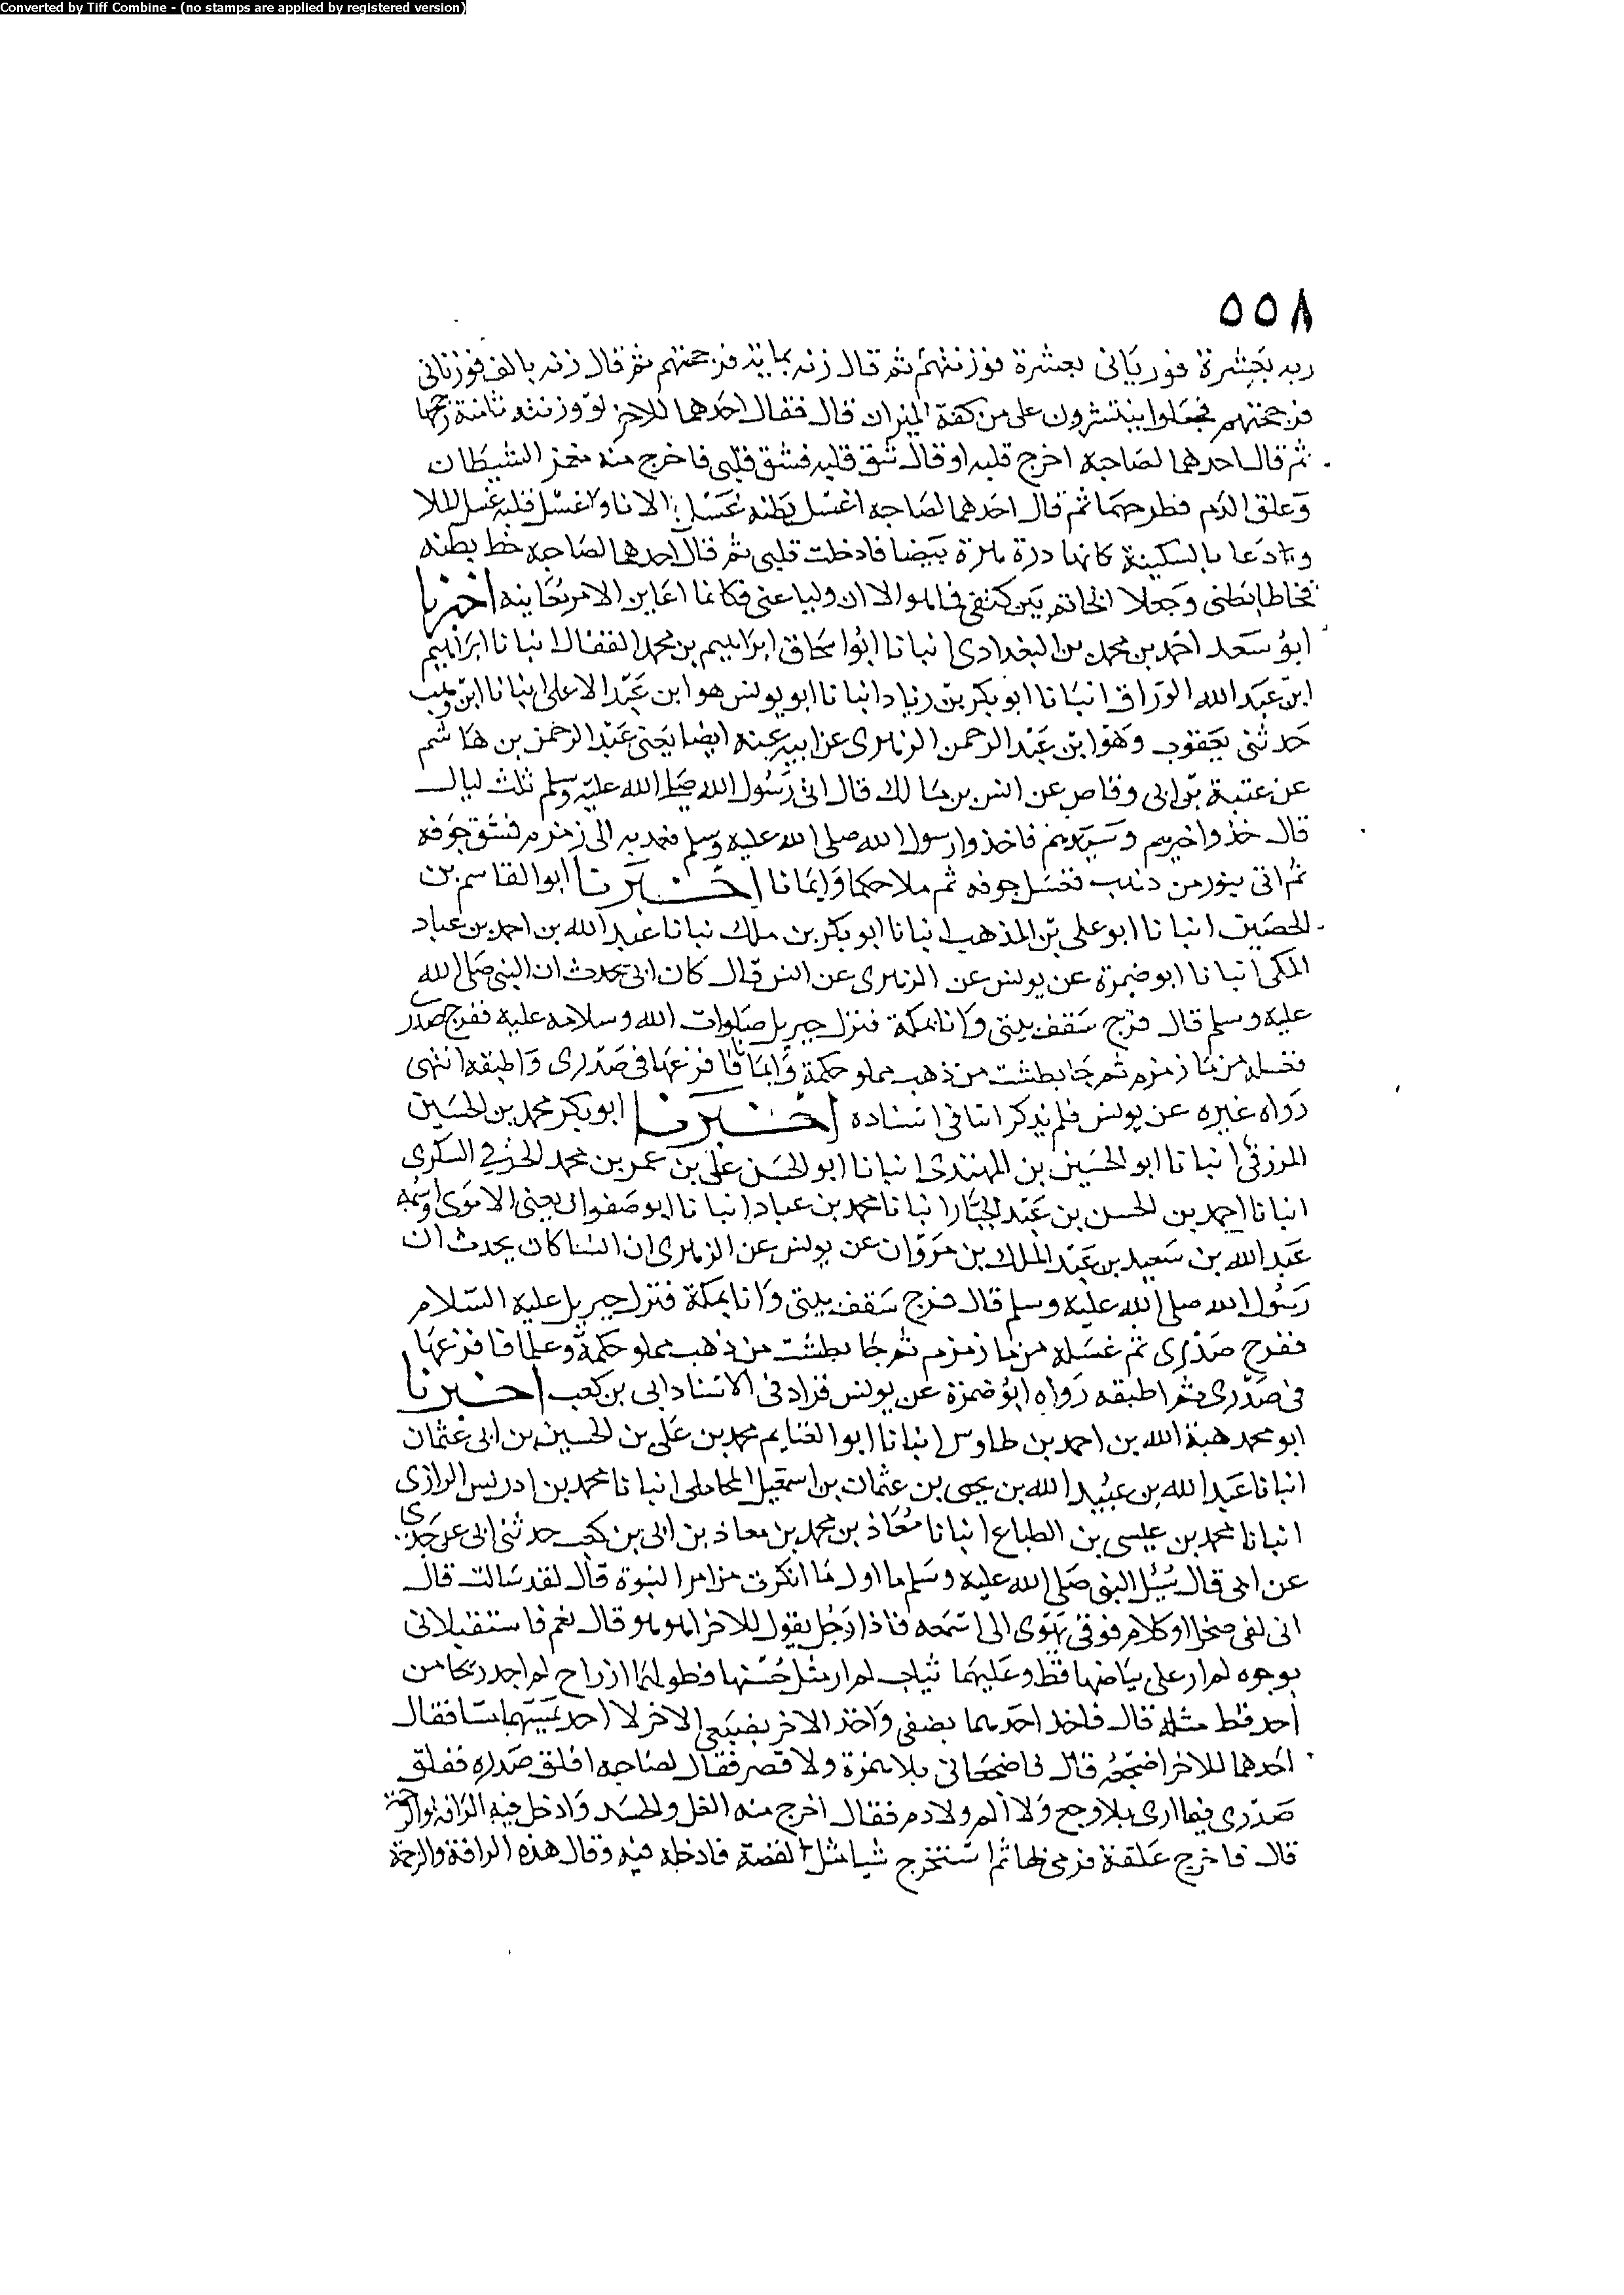 Converted by Tiff Combine - (no stamps are applied by registered version)
٥٥٨
زنه بعشرة فوزناني بعشرة فوزنتهم ثم قال زنه بماية فرجحتهم ثم قال زنه بالف فوزناني
فرجحتهم فجعلوا ينتثرون على من كفة الميزان قال فقال احدهما للاخر لو وزنته بامته رجحها
ثم قال احدهما لصاحبه اخرج قلبه او قال شق قلبه فشق قلبي فاخرج منه مغمز الشيطان
وعلق الدم فطرحهما ثم قال احدهما لصاحبه اغسل بطنه غسل الانا واغسل قلبه غسل الملا
ودعا بالسكينة كانها درة بيضا فادخلت قلبي ثم قال احدهما لصاحبه خط بطنه
فخاطا بطني وجعلا الخاتم بين كتفي فما هو الا ان وليا عني فكانما اعاين الامر معاينه اخبرنا
ابو سعد احمد بن محمد بن البغدادي انبانا ابوا سحاق ابراهيم بن محمد القفال انبانا ابراهيم
ابن عبد الله الوراق انبانا ابو بكر بن زياد انبانا ابو يونس هو ابن عبد الاعلى انبانا ابن وهب
حدثني يعقوب وهو ابن عبد الرحمن الزهري عن ابيه عنه ايضا يعني عبد الرحمن بن هاشم
عن عتبة بن ابي وقاص عن انس بن مالك قال اتى رسول الله صلى الله عليه وسلم ثلث ليال
قال خذوا خيرهم وسيدهم فاخذوا رسول الله صلى الله عليه وسلم فعمد به الى زمزم فشق جوفه
ثم اتى بتور من ذهب فغسل جوفه ثم ملا حكما وايمانا اخبرنا ابو القاسم بن
الحصين انبانا ابو علي بن المذهب انبانا ابو بكر بن ملك نبانا عبد الله بن احمد بن عباد
المكي انبانا ابو ضمرة عن يونس عن الزهري عن انس قال كان ابي يحدث ان النبي صلى الله
عليه وسلم قال فرج سقف بيتي وانا بمكة فنزل جبريل صلوات الله وسلامه عليه ففرج صدري
فغسله من ما زمزم ثم جا بطشت من ذهب مملو حكمة وايمانا فافرغها في صدري واطبقه انتهى
رواه غيره عن يونس فلم يذكر ابيا في اسناده اخبرنا ابو بكر محمد بن الحسين
المزرفي انبانا ابو الحسين بن المهتدي انبانا ابو الحسن علي بن عمر بن محمد الحربي السكري
انبانا احمد بن الحسن بن عبد الجبار انبانا محمد بن عباد انبانا ابو صفوان يعني الاموي واسمه
عبد الله بن سعيد بن عبد الملك بن مروان عن يونس عن الزهري ان انسا كان يحدث ان
رسول الله صلى الله عليه وسلم قال فرج سقف بيتي وانا بمكة فنزل جبريل عليه السلام
ففرج صدري ثم غسله من ما زمزم ثم جا بطشت من ذهب مملو حكمة وعلما فافرغها
في صدري ثم اطبقه رواه ابو ضمرة عن يونس فزاد في الاسناد ابي بن كعب اخبرنا
ابو محمد هبة الله بن احمد بن طاوس انبانا ابو الغنايم محمد بن علي بن الحسين بن ابي عثمان
انبانا عبد الله بن عبيد الله بن يحيى بن عثمان بن اسمعيل المحاملي انبانا محمد بن ادريس الرازي
انبانا محمد بن عيسى بن الطباع انبانا معاذ بن محمد بن معاذ بن ابي بن كعب حدثني ابي عن جدي
عن ابي قال سئل النبي صلى الله عليه وسلم ما اول ما انكرت من امر النبوة قال لقد سالت قال
اني لفي صخرا وكلام فوقي يهوى الى اسمعه فاذا رجل يقول للاخر اهو هو قال نعم فاستقبلاني
بوجوه لم ار على بياضها قط وعليهما ثياب لم ار مثل حسنها قط ولهما ارواح لم اجد ريحا من
احد قط مثله قال فاخذ احدهما بضفي واخذ الاخر بضبعي الاخر لا احد مسا فقال
احدهما للاخر اضجعه قال فاضجعاني بلا همزة ولا قصر فقال لصاحبه افلق صدره ففلق
صدري فيما ارى بلا وجع ولا الم ولا دم فقال اخرج منه الغل والحسد وادخل فيه الرافة والرحمة
قال فاخرج علقة فرمى بها ثم استخرج شيا مثل الفضة فادخله فيه وقال هذه الرافة والرحمة